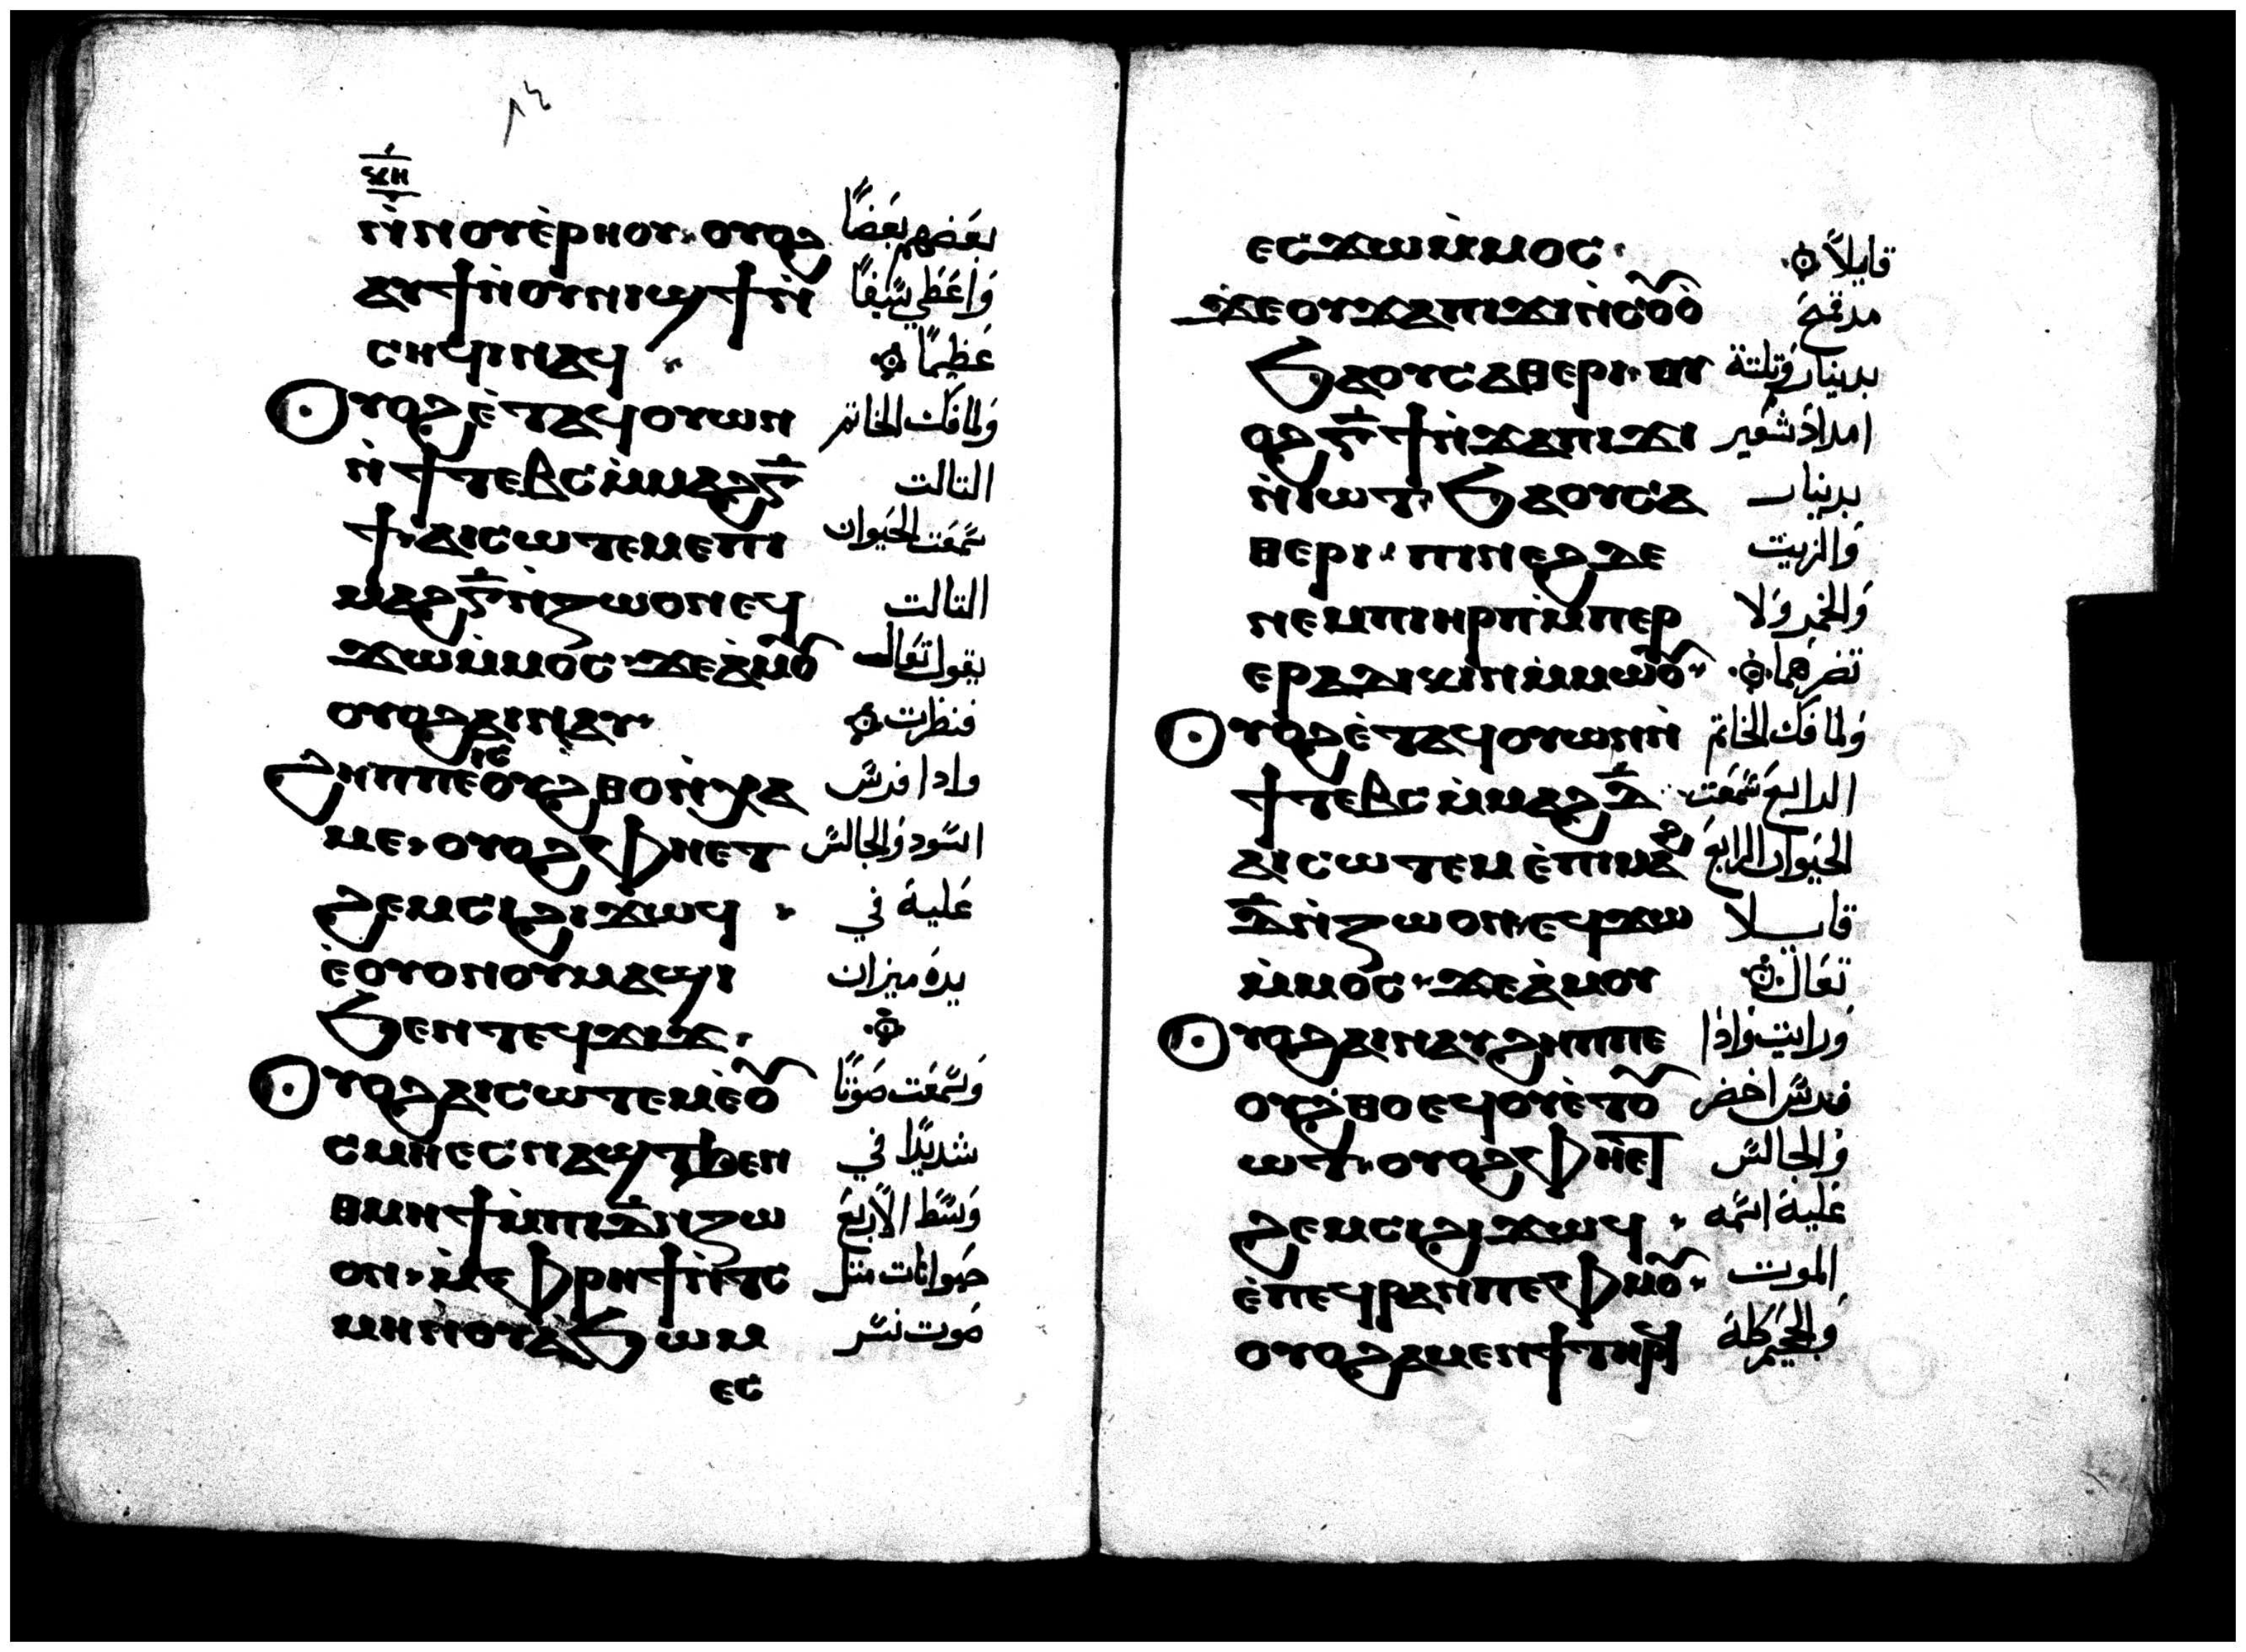 ⲕⲏ
ⲛ̀ⲛⲟⲩⲉ̀ⲣⲏⲟⲩ· ⲟⲩⲟϩ بعضهم بعضًا
ⲁⲩϯⲛ̀ⲟⲩⲛⲓϣϯⲛ̀ وَاعَطي سَيفًا
ⲥⲏϥⲓⲛⲁϥ عَظيمًا
ⲟⲩⲟϩⲉ̀ⲧⲁϥⲟⲩⲱⲛ وَلما فك الخاتم
ⲛ̀ϯⲧⲉⲃⲥⲙ̀ⲙⲁϩⲅ̅ التالت
ϯ·ⲁⲓⲥⲱⲧⲉⲙⲉⲡⲓ سمَعَت الحيَوان
ⲙⲁϩⲅ̅ⲛ̀ⲍⲱⲟⲛⲉϥ التالت
ϫⲱⲙ̀ⲙⲟⲥ·ϫⲉⲁ̀ⲙⲟⲩ يقول تعَال
ⲟⲩⲟϩⲁⲓⲛⲁⲩ· فنظرت
ϩⲏⲡⲡⲉⲓⲥⲟⲩϩⲑⲟⲛ̀ⲭⲁ وادا فرسَ
ⲙⲉ·ⲟⲩⲟϩⲫⲏⲉⲧ اسَود وَالجالسَ
ϩⲉⲙⲥⲓϩⲓϫⲱϥ عَلية في
ⲉ̀ⲟⲩⲟⲛⲟⲩⲙⲁϣⲓ يدهَ ميزان
ϧⲉⲛⲧⲉϥϫⲓϫ·
ⲟⲩⲟϩⲁⲓⲥⲱⲧⲉⲙⲉ̀ⲟⲩ وَسمَعَت صَوتًا
ⲥⲙⲏⲉⲥⲛⲁϣⲧϧⲉⲛ شديدًا في
ⲑⲙⲏϯⲙ̀ⲡⲓⲇ̅ⲛ̀ⲍⲱ وَسَط الأربَعَ
ⲟⲛ·ⲙ̀ⲉⲫⲣⲏϯⲛ̀ⲧⲥ حيَوانات متل
ⲙⲏⲛ̀ⲟⲩⲁ̀ϧⲱⲙ صَوت نسَر
ⲉⲥ
ⲉⲥϫⲱⲙ̀ⲙⲟⲥ· قايلاً
ϫⲉⲟⲩϫⲁⲡⲓϫⲓⲛ̀ⲥⲟⲩⲟ̀ مد قمح
ϧⲁⲟⲩⲥⲁⲑⲉⲣⲓ·ⲟⲩ بدينار وَتلتة
ⲟϩⲅ̅ϯⲛ̀ϫⲁⲡⲓϫⲓ امداد شعَير
ⲛ̀ⲓⲱⲧ·ϧⲁⲟⲩⲥⲁ بدينار
ⲑⲉⲣⲓ·ⲡⲓⲛⲉϩⲇⲉ وَالزيت
ⲛⲉⲙⲡⲓⲏⲣⲡⲙ̀ⲡⲉⲣ وَالخمر وَلا
ⲉⲣⲁⲇⲓⲕⲓⲛⲙ̀ⲙⲱⲟⲩ· تضرهما
ⲟⲩⲟϩⲉ̀ⲧⲁϥⲟⲩⲱⲛⲛ̀ وَلما فك الخاتم
ϯⲧⲉⲃⲥⲙ̀ⲙⲁϩⲇ̅ الرابعَ سَمعَت
ⲁⲓⲥⲱⲧⲉⲙⲉ̀ⲡⲓⲙⲁϩ الحيَوان الرابعَ
ⲇ̅ⲛ̀ⲍⲱⲟⲛ·ⲉϥϫⲱ قايلا
ⲙ̀ⲙⲟⲥ·ϫⲉⲁ̀ⲙⲟⲩ تعَال
ⲟⲩⲟϩⲁⲓⲛⲁⲩϩⲏⲡⲡⲉ وَرايت وَاذا
ⲟⲩϩⲑⲟⲉϥⲟⲩⲉ̀ⲧⲟⲩ فرسَ اخضر
ⲱⲧ·ⲟⲩⲟϩⲫⲏⲉⲧ وَالجالسَ
ϩⲉⲙⲥⲓϩⲓϫⲱϥ عَلية اسَمه
ⲉ̀ⲡⲉϥⲣⲁⲛⲡⲉⲫⲙⲟⲩ· الموت
ⲟⲩⲟϩⲁⲙⲉⲛϯⲧⲏⲣϥ وَالجحَيم كلة